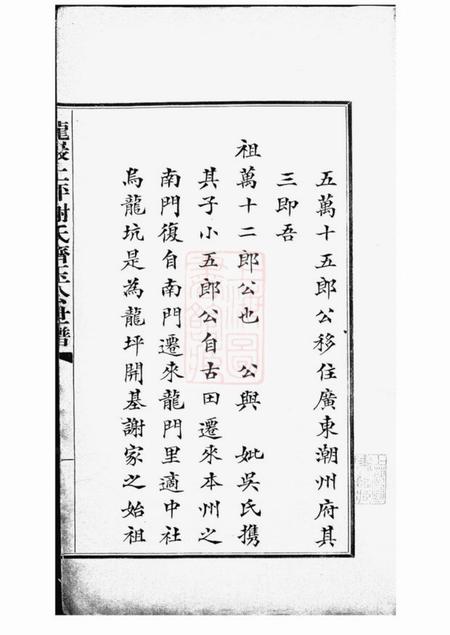 五萬十五郎公移住廣東潮州府其
三即吾
祖萬十二郎公也 公與 妣吳氏携
其子小五郎公自古田遷來本州之
南門復自南門遷來龍門里適中社
烏龍坑是為龍坪開基謝家之始祖